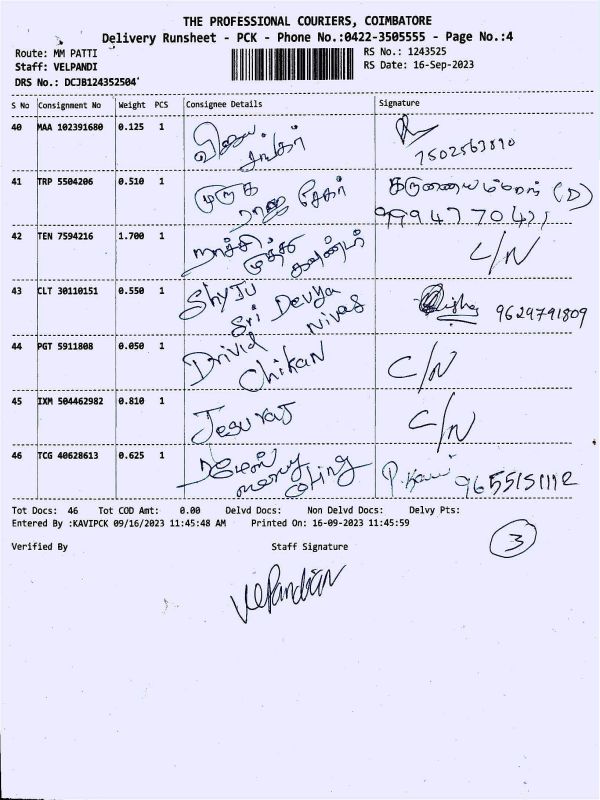 THE PROFESSIONAL COURIERS, COIMBATORE
Delivery Runsheet - PCK - Phone No.:0422-3505555 - Page No.:4
Route: MM PATTI
RS No.: 1243525
Staff: VELPANDI
RS Date: 16-Sep-2023
DRS No.: DCJB124352504
S No Consignment No Weight PCS Consignee Details Signature
40 MAA 102391680 0.125 1 விஜய
சங்கர்
7502563890
41 TRP 5504206 0.510 1 முருக
ராஜ சேகர் (D)
9994770421
42 TEN 7594216 1.700 1 நாச்சி C/N
முத்து
கவுண்டர்
43 CLT 30110151 0.550 1 Shyju
Sri Devya 9629791809
Nivas
44 PGT 5911808 0.050 1 Drivid C/N
Chikan
45 IXM 504462982 0.810 1 Jesuraj C/N
46 TCG 40628613 0.625 1 P. Kavi 9655151112
Tot Docs: 46 Tot COD Amt: 0.00 Delvd Docs: Non Delvd Docs: Delvy Pts:
Entered By :KAVIPCK 09/16/2023 11:45:48 AM Printed On: 16-09-2023 11:45:59
3
Verified By Staff Signature
VelPandian